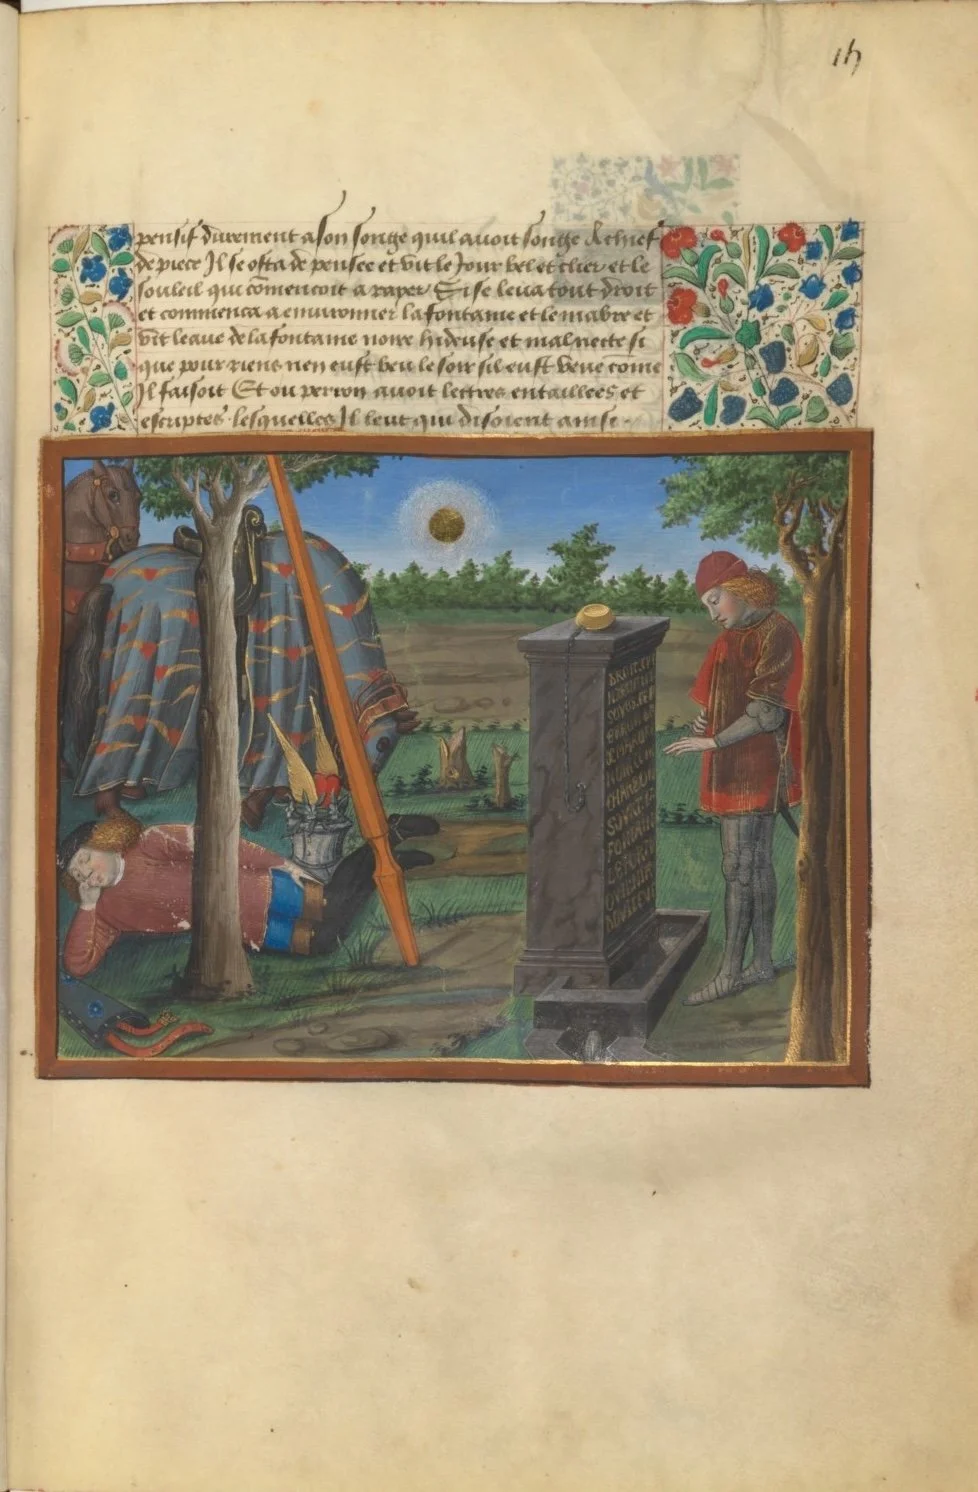 15
pensif durement a son songe quil auoit songe A chief
de piece Il se osta de pensee et vit le Jour bel et cler et le
souleil qui comencoit a rayer Si se leua tout droit
et commenca a enuironner la fontaine et le mabre et
vit leaue de la fontaine noire hideuse et mal necte si
que pour riens nen eust beu le soir sil eust veue come
Il faisoit Et ou perron auoit lettres entaillees et
escriptes lesquelles Il leut qui disoient ainsi
DROIT